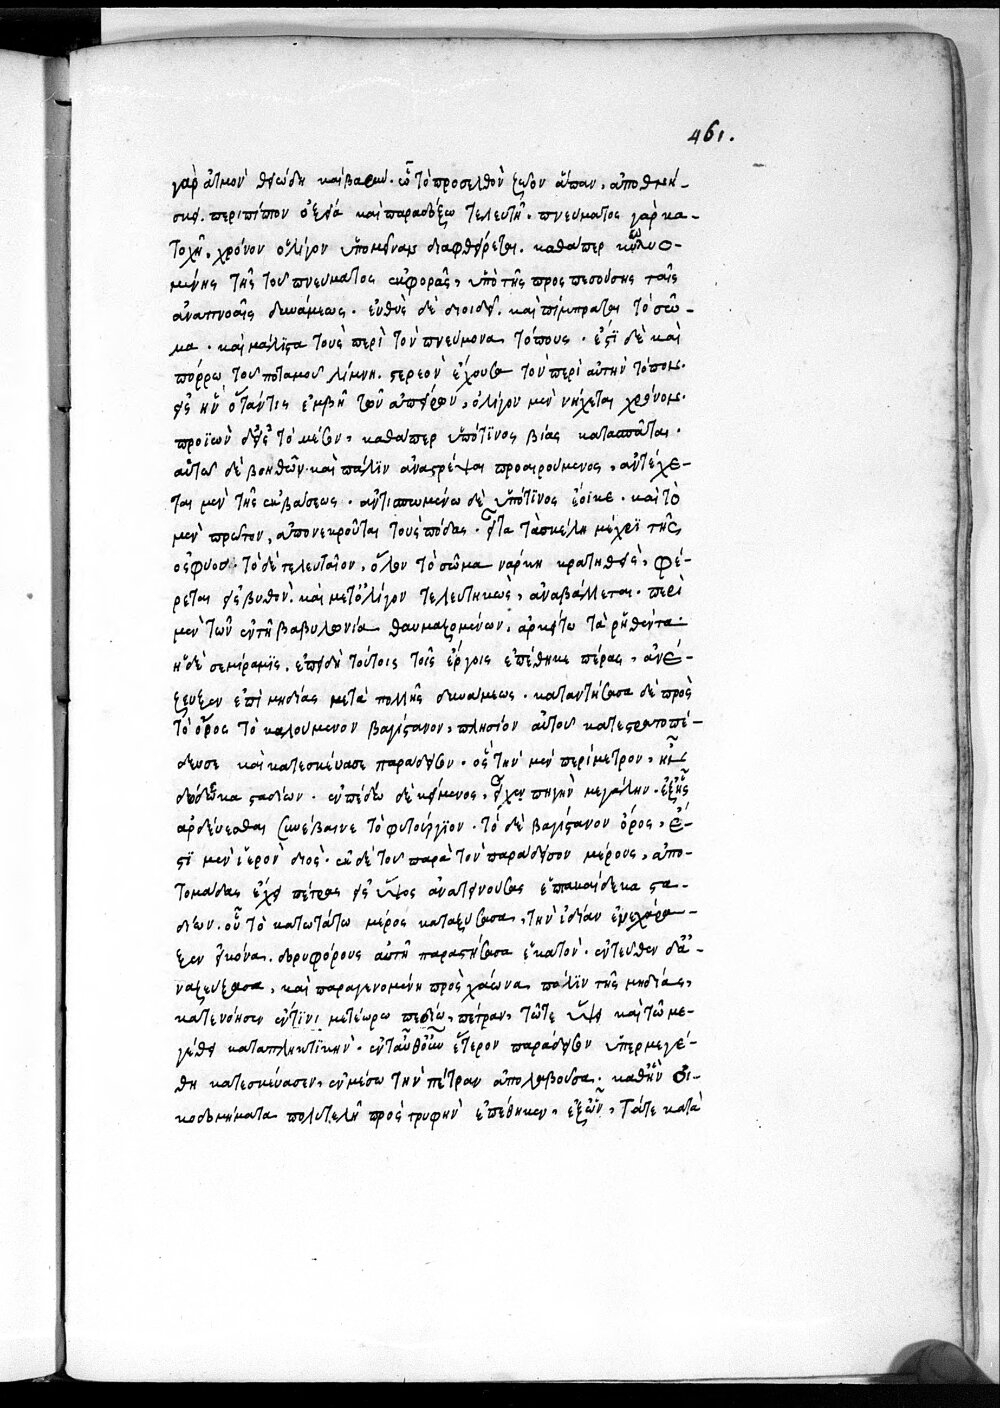 461.
γὰρ ἀτμὸν θειώδη καὶ βαρύν. ᾧ τὸ προσελθὸν ζῶον ἅπαν, ἀποθνή-
σκει. περιπίπτον ὀξείᾳ καὶ παραδόξω τελευτῆ. πνεύματος γὰρ κα-
τοχῆ, χρόνον ὀλίγον ὑπομεῖναν διαφθείρεται. καθάπερ κωλυο-
μένης τῆς τοῦ πνεύματος ἐκφορᾶς, ὑπὸ τῆς προσπεσούσης ταῖς
ἀναπνοαῖς δυνάμεως. εὐθὺς δὲ διοιδεῖ. καὶ πίμπραται τὸ σῶ-
μα. καὶ μάλιστα τοὺς περὶ τὸν πνεύμονα τόπους. ἔστι δὲ καὶ
πόρρω τοῦ ποταμοῦ λίμνη. στερεὸν ἔχουσα τὸν περὶ αὐτὴν τόπον.
εἰς ἣν ὅταν τις ἐμβῆ τῶν ἀπείρων, ὀλίγον μὲν νήχεται χρόνον.
προϊὼν δ' εἰς τὸ μέσον, καθάπερ ὑπό τινος βίας κατασπᾶται.
αὑτῶ δὲ βοηθῶν καὶ πάλιν ἀναστρέψαι προαιρούμενος, ἀντέχε-
ται μὲν τῆς ἐκβάσεως. ἀντισπωμένω δὲ ὑπό τινος ἔοικε. καὶ τὸ
μὲν πρῶτον, ἀπονεκροῦται τοὺς πόδας. εἶτα τὰ σκέλη μέχρι τῆς
ὀσφύος. τὸ δὲ τελευταῖον, ὅλον τὸ σῶμα νάρκη κρατηθεὶς, φέ-
ρεται εἰς βυθὸν. καὶ μετ' ὀλίγον τελευτηκὼς, ἀναβάλλεται. περὶ
μὲν τῶν ἐν τῆ βαβυλωνία θαυμαζομένων, ἀρκείτω τὰ ῥηθέντα.
ἡ δὲ σεμίραμις, ἐπειδὴ τούτοις τοῖς ἔργοις ἐπέθηκε πέρας, ἀνέ-
ζευξεν ἐπὶ μηδίας μετὰ πολλῆς δυνάμεως. καταντήσασα δὲ πρὸς
τὸ ὄρος τὸ καλούμενον βαγίστανον, πλησίον αὐτοῦ κατεστρατοπέ-
δευσε καὶ κατεσκεύασε παράδεισον. ὃς τὴν μὲν περίμετρον, ἦν
δώδεκα σταδίων. ἐν πεδίω δὲ κείμενος, εἶχεν πηγὴν μεγάλην. ἐξ ἧς
ἀρδεύεσθαι συνέβαινε τὸ φυτούργιον. τὸ δὲ βαγίστανον ὄρος, ἔ-
στι μὲν ἱερὸν διός. ἐκ δὲ τοῦ παρὰ τὸν παράδεισον μέρους, ἀπο-
τομάδας ἔχει πέτρας εἰς ὕψος ἀνατεινούσας ἑπτακαίδεκα στα-
δίων. οὗ τὸ κατωτάτω μέρος καταξύσασα, τὴν ἰδίαν ἐνεχάρα-
ξεν εἰκόνα. δορυφόρους αὐτῆ παραστήσασα ἑκατόν. ἐντεῦθεν δ' ἀ-
ναζεύξασα, καὶ παραγενομένη πρὸς χάωνα πόλιν τῆς μηδίας,
κατενόησεν ἔν τινι μετεώρω πεδίω, πέτραν, τῶτε ὕψει καὶ τῶ με-
γέθει καταπληκτικήν. ἐνταῦθ' οὖν ἕτερον παράδεισον ὑπερμεγέ-
θη κατεσκεύασεν, ἐν μέσω τὴν πέτραν ἀπολαβοῦσα. καθ' ἣν οἰ-
κοδομήματα πολυτελῆ πρὸς τρυφὴν ἐπέθηκεν, ἐξ ὧν, τάτε κατὰ